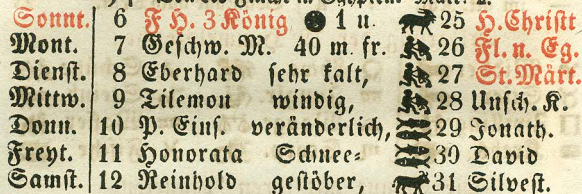 Sonnt. 6 F H. 3 König ● 1 u. 25 H. Christt
Mont. 7 Geschw. M. 40 m. fr. 26 Fl. n. Eg.
Dienst. 8 Eberhard sehr kalt, 27 St. Märt.
Mittw. 9 Tilemon windig, 28 Unsch. K.
Donn. 10 P. Eins. veränderlich, 29 Jonath.
Freyt. 11 Honorata Schnee= 30 David
Samst. 12 Reinhold gestöber, 31 Silvest.